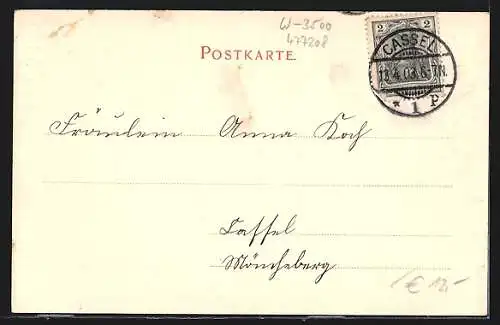 W-3500
477208
POSTKARTE.
2 2
CASSEL
13.4.03.8-9N.
* 1 P
Fräulein Anna Koch
Cassel
Möncheberg
€ 12,-